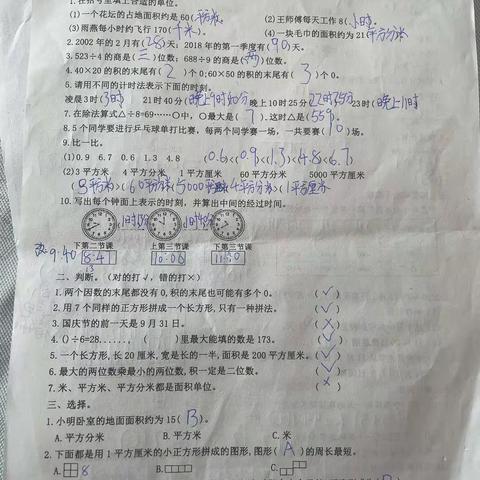 1.在括号里填上合适的单位。
(1)一个花坛的占地面积约是60(平方米)。 (2)王师傅每天工作8(小时)。
(3)雨燕每小时约飞行170(千米)。 (4)一块毛巾的面积约为21(平方分米)
2.2002年的2月有(28)天;2018年的第一季度有(90)天。
3.523÷4的商是(三)位数;688÷9的商是(两)位数。
4.40×20的积的末尾有(2)个0;60×50的积的末尾有(3)个0。
5.请用不同的计时法表示下面的时刻。
凌晨3时(3时) 21时40分(晚上9时40分) 晚上10时25分(22时25分) 23时(晚上11时)
7.在除法算式△÷8=69……〇中,〇最大是(7),这时△是(559)。
8.5个同学要进行乒乓球单打比赛,每两个同学赛一场,一共要赛(10)场。
9.比一比。
(1)0.9 6.7 0.6 1.3 4.8 (0.6)<(0.9)<(1.3)<(4.8)<(6.7)
(2)3平方米 4平方分米 1平方厘米 60平方分米 5000平方厘米
10.写出每个钟面上表示的时刻,并算出中间的经过时间。
下第二节课 上第三节课 下第三节课
9:40 8:41 10:06 11:50
二、判断。(对的打√,错的打×)
1.两个因数的末尾都没有0,积的末尾也可能有多个0。 (√)
2.用7个同样的正方形拼成一个长方形,只有一种拼法。 (√)
3.国庆节的前一天是9月31日。 (×)
4.()÷6=28……,( )里最大能填的数是173。 (√)
5.一个长方形,长20厘米,宽是长的一半,面积是200平方厘米。(√)
6.最大的两位数乘最小的两位数,积一定是三位数。 (√)
7.米、平方米、平方分米都是面积单位。 (×)
三、选择。
1.小明卧室的地面面积约为15(B)。
A.平方分米 B.平方米 C.米
2.下面都是用1平方厘米的小正方形拼成的图形,图形(A)的周长最短。
A. 8 B. C.